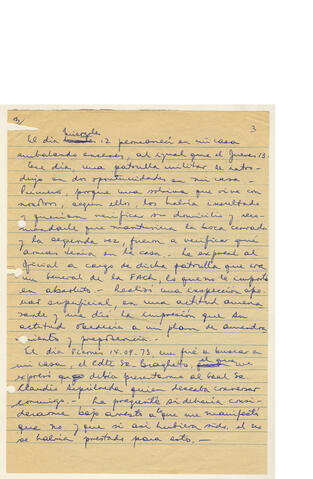 3/
3
Miercoles
El día 12 permanecí en mi casa
embalando enseres, al igual que el Jueves 13.
Ese día, una patrulla militar se intro-
dujo en dos oportunidades en mi casa.-
Primero, porque una sobrina que vive con
nosotros, según ellos, los había insultado
y querían verificar su domicilio y reco-
mendarle que mantuviera la boca cerrada
y la segunda vez, fueron a verificar qué
armas tenía en la casa.- Le expresé al
Oficial a cargo de dicha patrulla que era
un General de la FACh, lo que no le importó
en absoluto.- Realizó una inspección
superficial, en una actitud amena
zante y me dió la impresión que su
actitud obedecía a un plan de amedren
tamiento y prepotencia.-
El día Viernes 14.09.73, me fué a buscar a
mi casa, el Cdte Sr. quien
expresó que debía presentarme al Gral Sr.
Claudio Sepúlveda quien deseaba conversar
conmigo.- Le pregunté si debería consi-
derarme bajo arresto a lo que me manifestó
que no y que si así hubiera sido, él no
se habría prestado para esto.-